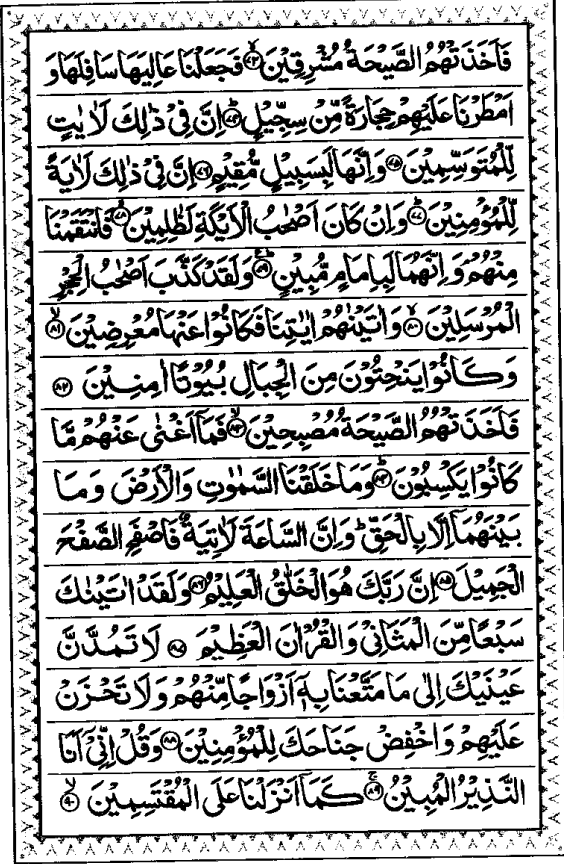 فَاَخَذَتْهُمُ الصَّيْحَةُ مُشْرِقِيْنَ ۙ﴿۷۳﴾ فَجَعَلْنَا عَالِيَهَا سَافِلَهَا وَ
اَمْطَرْنَا عَلَيْهِمْ حِجَارَةً مِّنْ سِجِّيْلٍ ؕ﴿۷۴﴾ اِنَّ فِىْ ذٰلِكَ لَاٰيٰتٍ
لِّلْمُتَوَسِّمِيْنَ ﴿۷۵﴾ وَاِنَّهَا لَبِسَبِيْلٍ مُّقِيْمٍ ﴿۷۶﴾ اِنَّ فِىْ ذٰلِكَ لَاٰيَةً
لِّلْمُؤْمِنِيْنَ ؕ﴿۷۷﴾ وَاِنْ كَانَ اَصْحٰبُ الْاَيْكَةِ لَظٰلِمِيْنَ ۙ﴿۷۸﴾ فَانْتَقَمْنَا
مِنْهُمْ وَاِنَّهُمَا لَبِاِمَامٍ مُّبِيْنٍ ؕ﴿۷۹﴾ وَلَقَدْ كَذَّبَ اَصْحٰبُ الْحِجْرِ
الْمُرْسَلِيْنَ ۙ﴿۸۰﴾ وَاٰتَيْنٰهُمْ اٰيٰتِنَا فَكَانُوْا عَنْهَا مُعْرِضِيْنَ ۙ﴿۸۱﴾
وَكَانُوْا يَنْحِتُوْنَ مِنَ الْجِبَالِ بُيُوْتًا اٰمِنِيْنَ ﴿۸۲﴾
فَاَخَذَتْهُمُ الصَّيْحَةُ مُصْبِحِيْنَ ۙ﴿۸۳﴾ فَمَاۤ اَغْنٰى عَنْهُمْ مَّا
كَانُوْا يَكْسِبُوْنَ ؕ﴿۸۴﴾ وَمَا خَلَقْنَا السَّمٰوٰتِ وَالْاَرْضَ وَمَا
بَيْنَهُمَاۤ اِلَّا بِالْحَقِّ ؕ وَاِنَّ السَّاعَةَ لَاٰتِيَةٌ فَاصْفَحِ الصَّفْحَ
الْجَمِيْلَ ﴿۸۵﴾ اِنَّ رَبَّكَ هُوَ الْخَلّٰقُ الْعَلِيْمُ ﴿۸۶﴾ وَلَقَدْ اٰتَيْنٰكَ
سَبْعًا مِّنَ الْمَثَانِىْ وَالْقُرْاٰنَ الْعَظِيْمَ ﴿۸۷﴾ لَا تَمُدَّنَّ
عَيْنَيْكَ اِلٰى مَا مَتَّعْنَا بِهٖۤ اَزْوَاجًا مِّنْهُمْ وَلَا تَحْزَنْ
عَلَيْهِمْ وَاخْفِضْ جَنَاحَكَ لِلْمُؤْمِنِيْنَ ﴿۸۸﴾ وَقُلْ اِنِّىْۤ اَنَا
النَّذِيْرُ الْمُبِيْنُ ۚ﴿۸۹﴾ كَمَاۤ اَنْزَلْنَا عَلَى الْمُقْتَسِمِيْنَ ۙ﴿۹۰﴾